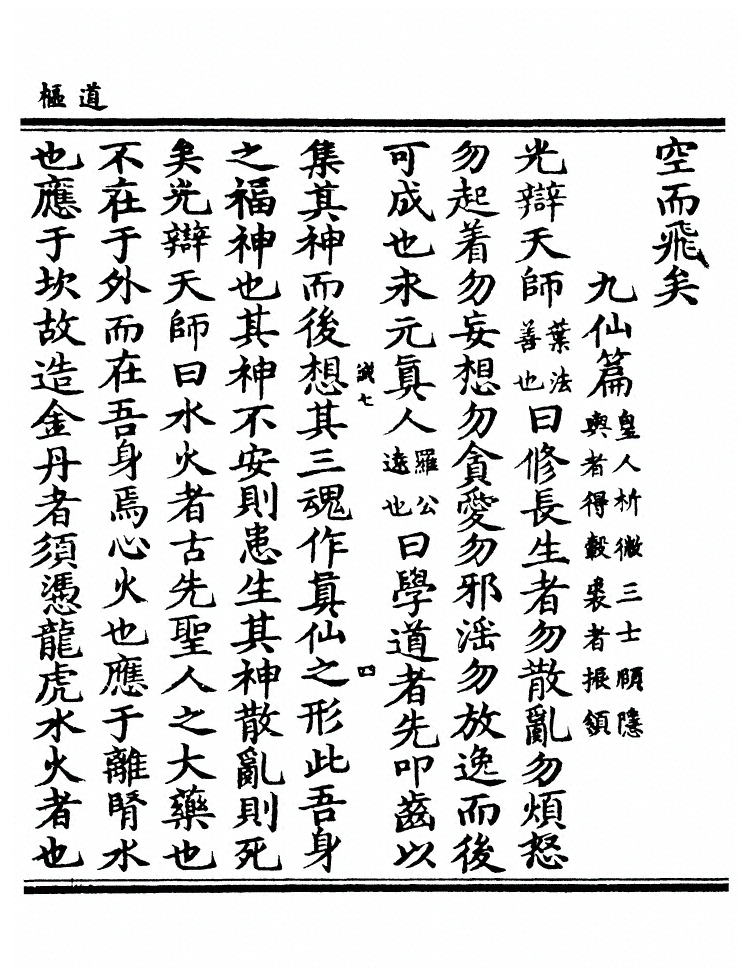 道樞
空而飛矣
九仙篇 皇人析微三士頤隱
輿者得轂裘者振領
光辯天師葉法善也曰修長生者勿散亂勿煩怒
勿起着勿妄想勿貪愛勿邪滛勿放逸而後
可成也永元眞人羅公遠也曰學道者先叩齒以
誠七 四
集其神而後想其三魂作眞仙之形此吾身
之福神也其神不安則患生其神散亂則死
矣光辯天師曰水火者古先聖人之大藥也
不在于外而在吾身焉心火也應于離腎水
也應于坎故造金丹者須憑龍虎水火者也